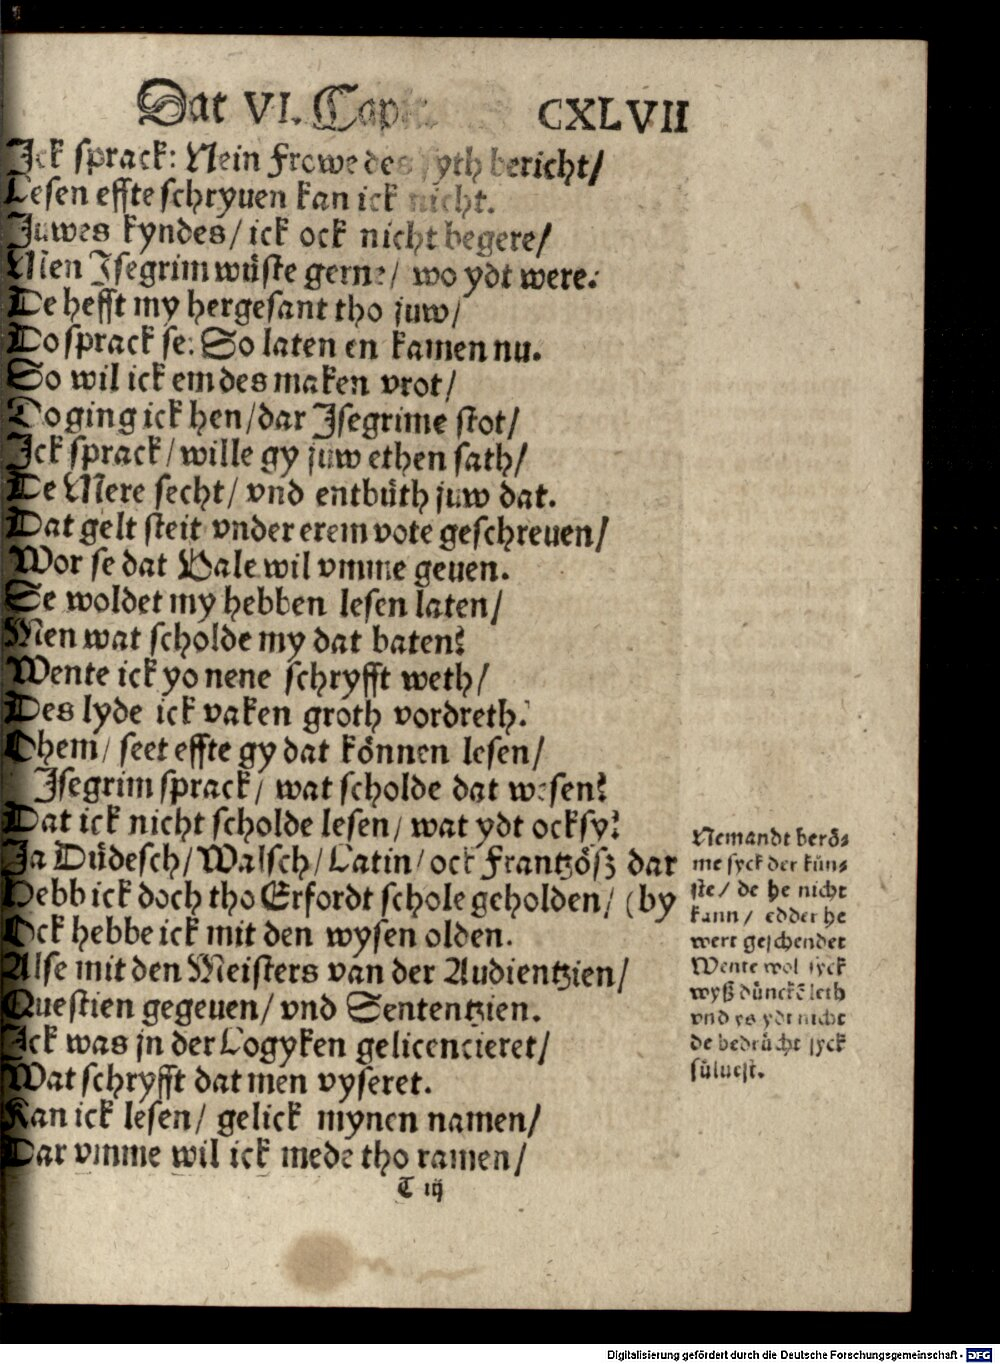 Dat VI. Cap CXLVII
Ick sprack: Nein Frowe des syth bericht/
Lesen effte schryuen kan ick nicht.
Juwes kyndes/ ick ock nicht begere/
Men Isegrim wüste gerne/ wo ydt were:
De hefft my hergesant tho juw/
Do sprack se: So laten en kamen nu.
So wil ick em des maken vrot/
Do ging ick hen/ dar Isegrime stot/
Ick sprack/ wille gy juw ethen sath/
De Mere secht/ vnd entbüth juw dat.
Dat gelt steit vnder erem vote geschreuen/
Wor se dat Vale wil vmme geuen.
Se woldet my hebben lesen laten/
Men wat scholde my dat baten?
Wente ick yo nene schryfft weth/
Des lyde ick vaken groth vordreth.
Ohem/ seet effte gy dat können lesen/
Isegrim sprack/ wat scholde dat wesen?
Dat ick nicht scholde lesen/ wat ydt ock sy?
Ja Düdesch/ Walsch/ Latin/ ock Frantzösz dar
Hebb ick doch tho Erfordt schole geholden/ (by
Ock hebbe ick mit den wysen olden.
Alse mit den Meisters van der Audientzien/
Questien gegeuen/ vnd Sententzien.
Ick was jn der Logyken gelicencieret/
Wat schryfft dat men vyseret.
Kan ick lesen/ gelick mynen namen/
Dar vmme wil ick mede tho ramen/
T iij
Nemandt berö-
me syck der kün-
ste/ de he nicht
kann/ edder he
wert geschendet
Wente wol syck
wyß dünckē leth
vnd ys ydt nicht
de bedrücht syck
süluest.
Digitalisierung gefördert durch die Deutsche Forschungsgemeinschaft - DFG